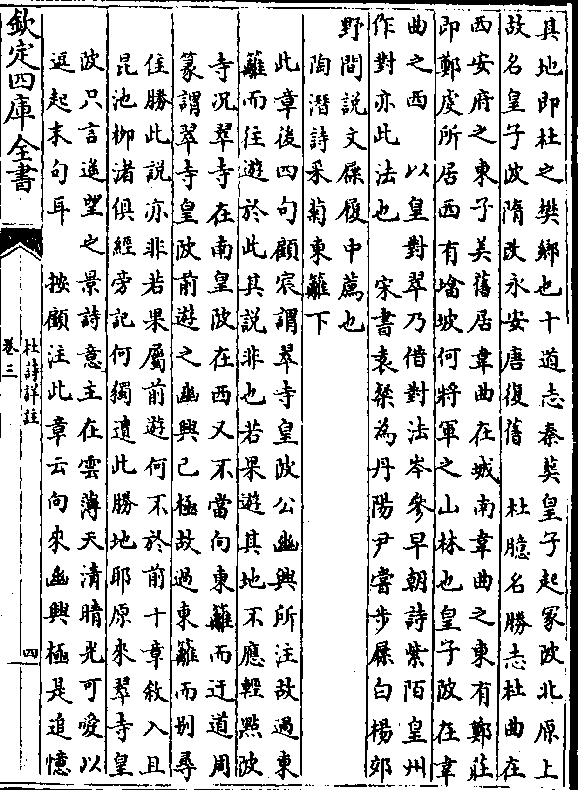 其地即杜之樊鄉也十道志秦葬皇子起冢陂北原上
故名皇子陂隋改永安唐復舊　杜臆名勝志杜曲在
西安府之東子美舊居韋曲在城南韋曲之東有鄭莊
即鄭虔所居西有塯坡何將軍之山林也皇子陂在韋
曲之西　以皇對翠乃借對法岑參早朝詩紫陌皇州
作對亦此法也　宋書袁粲為丹陽尹嘗步屧白楊郊
野間説文屧履中薦也
陶潛詩采菊東籬下
此章後四句顧宸謂翠寺皇陂公幽興所注故過東
籬而往遊於此其説非也若果遊其地不應輕㸃波
寺况翠寺在南皇陂在西又不當向東籬而迂道周
篆謂翠寺皇陂前遊之幽興已極故過東籬而别尋
佳勝此説亦非若果屬前遊何不於前十章敘入且
昆池柳渚俱經旁記何獨遺此勝地耶原來翠寺皇
陂只言遥望之景詩意主在雲薄天清晴光可愛以
逗起末句耳　按顧注此章云向來幽興極是追憶
欽定四庫全書
杜詩詳註
卷三
四